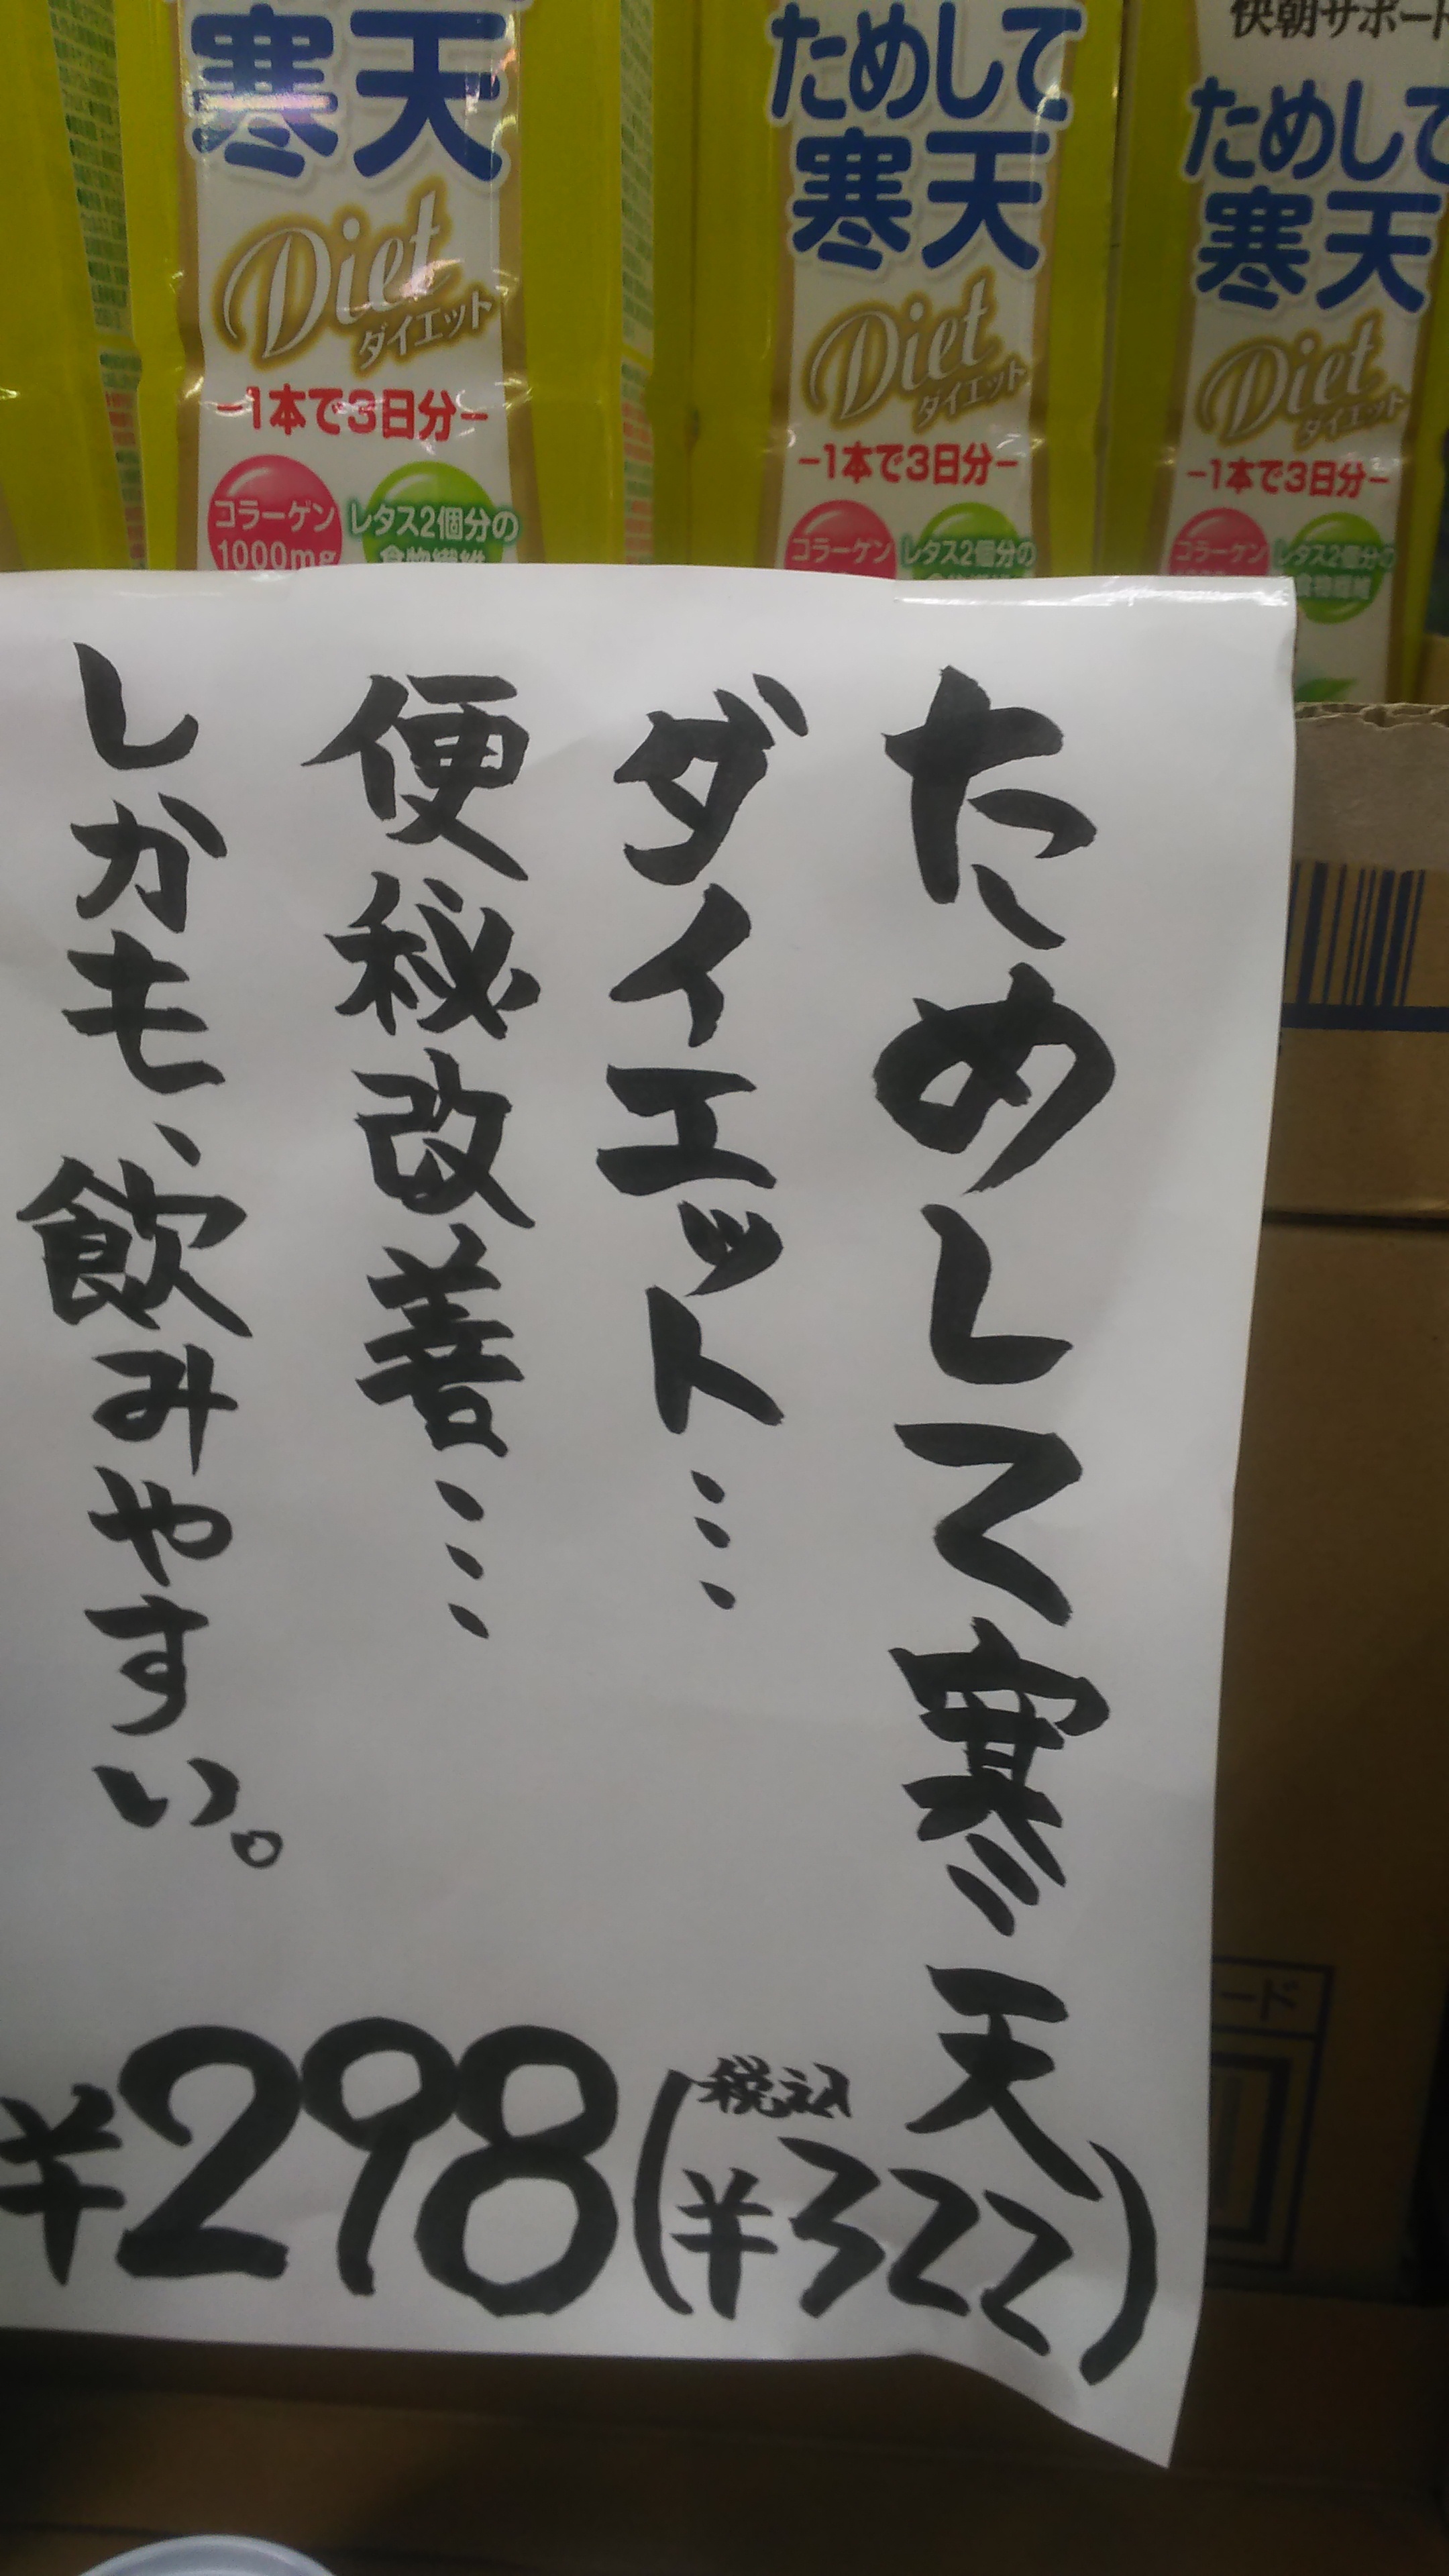 寒天
Diet
ダイエット
-1本で3日分-
コラーゲン
1000mg
レタス2個分の
食物繊維
ためして
寒天
Diet
ダイエット
-1本で3日分-
コラーゲン
レタス2個分の
快朝サポート
ためして
寒天
Diet
ダイエット
-1本で3日分-
コラーゲン
レタス2個分の
食物繊維
ためして寒天
ダイエット…
便秘改善…
しかも、飲みやすい。
¥298(税込¥322)